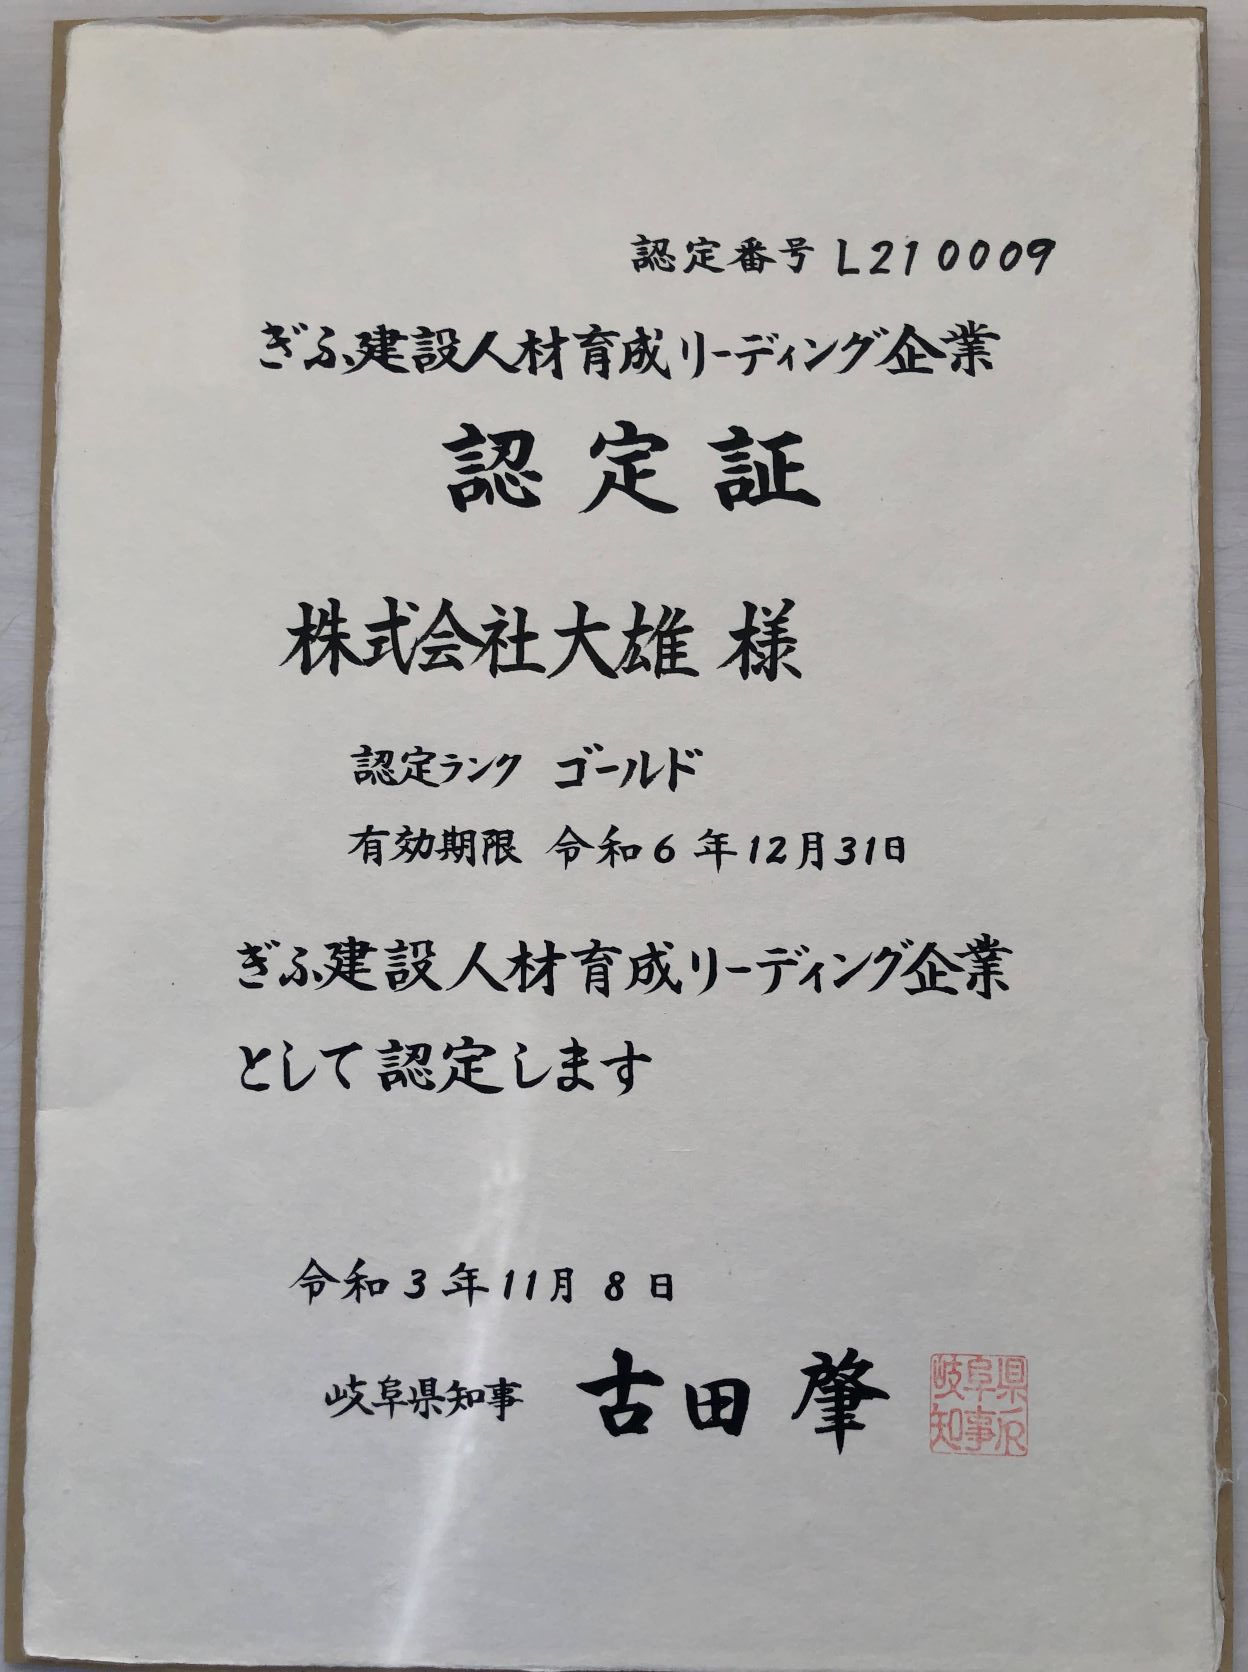 認定番号 L210009
ぎふ建設人材育成リーディング企業
認定証
株式会社大雄 様
認定ランク ゴールド
有効期限 令和6年12月31日
ぎふ建設人材育成リーディング企業
として認定します
令和3年11月8日
岐阜県知事 古田 肇
岐阜県
知事印